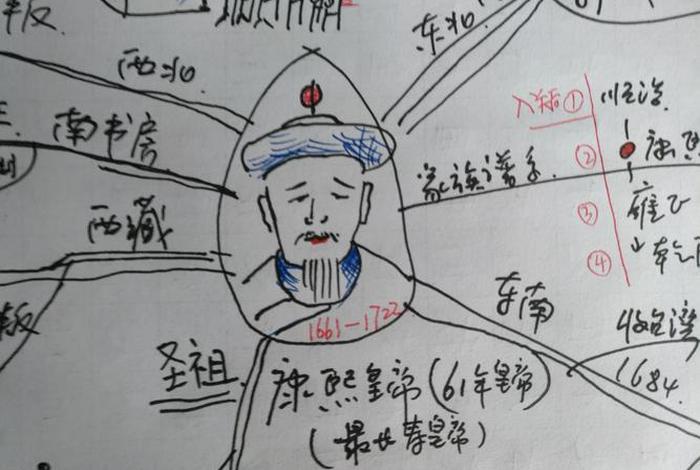 东北
西北
入关①
顺治
南书房
②
康熙
家族谱系
③
雍正
西藏
④
乾
东南
1661—1722
收台湾
1684.
圣祖
康熙皇帝(61年皇帝)
(最长寿皇帝)